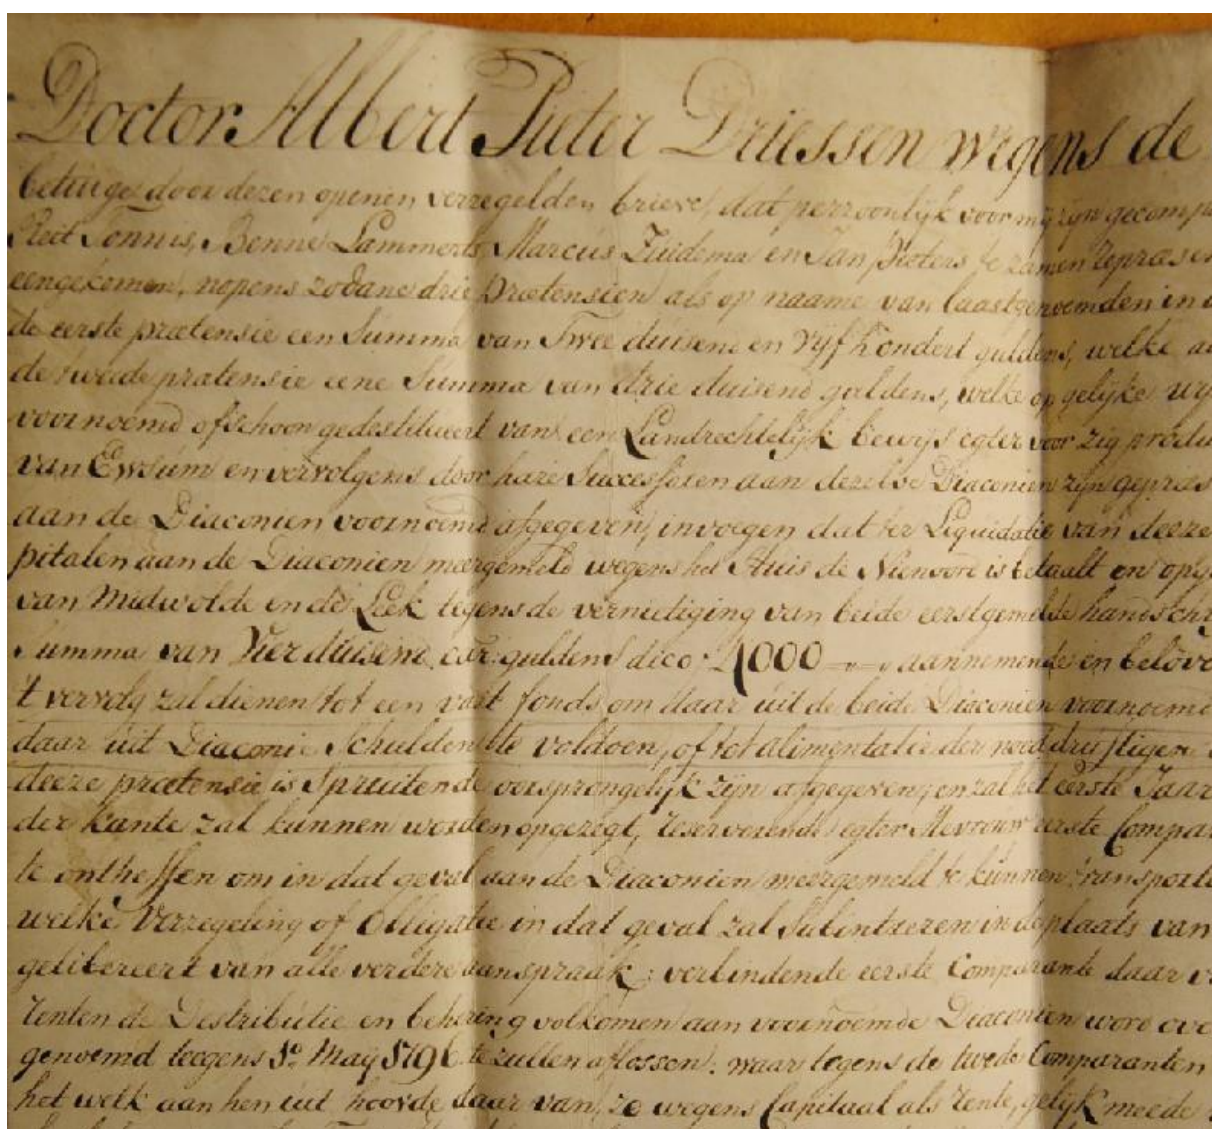 Doctor Albert Pieter Driessen wegens de
betuige door dezen openen verzegelden brieve, dat perzoonlijk voor mij zijn gecomp
Reet Tonnis, Benne Lammerts, Marcus Zuidema en Jan Pieters te zamen repræsen
eengekomen, nopens zodane drie Prætensien als op naame van laastgenoemden in
de eerste prætensie een Summa van Twee duisend en Vijf hondert guldens, welke
de twede prætensie eene Summa van drie duisend guldens, welke op gelijke wij
voornoemd ofschoon gedestitueert van een Landrechtelijk bewijs egter voor zig produ
van Ewsum en vervolgens door haare Successoren aan dezelve Diaconien zijn gepras
aan de Diaconien voornoemd afgegeven, invoegen dat ter Liquidatie van deeze
pitalen aan de Diaconien meergemeld wegens het Huis de Nienoord is betaalt en opge
van Midwolde en de Leek tegens de vernietiging van beide eerstgemelde handschr
Summa van Vierduisend car: guldens dico 4000 aannemende en belove
't vervolg zal dienen tot een vast fonds om daar uit de beide Diaconien voornoemd
daar uit Diaconie Schulden te voldoen, of tot alimentatie der nooddruftigen
deeze prætensie is Spruitende oorsprongelijk zijn afgegeven; en zal het eerste Jaar
der kante zal kunnen worden opgezegt, reserverende egter Mevrouw eerste Compar
te ontheffen om in dat geval aan de Diaconien meergemeld te kunnen transporte
welke Verzegeling of Obligatie in dat geval zal Subintreren in de plaats van
gelibereert van alle verdere aanspraak; verbindende eerste Comparante daar v
renten de Distributie en behering volkomen aan voornoemde Diaconien word ove
genoemd teegens May 1796 te zullen aflossen: waar tegens de twede Comparanten
het welk aan hen uit hoofde daar van, zo wegens Capitaal als rente, gelijk meede